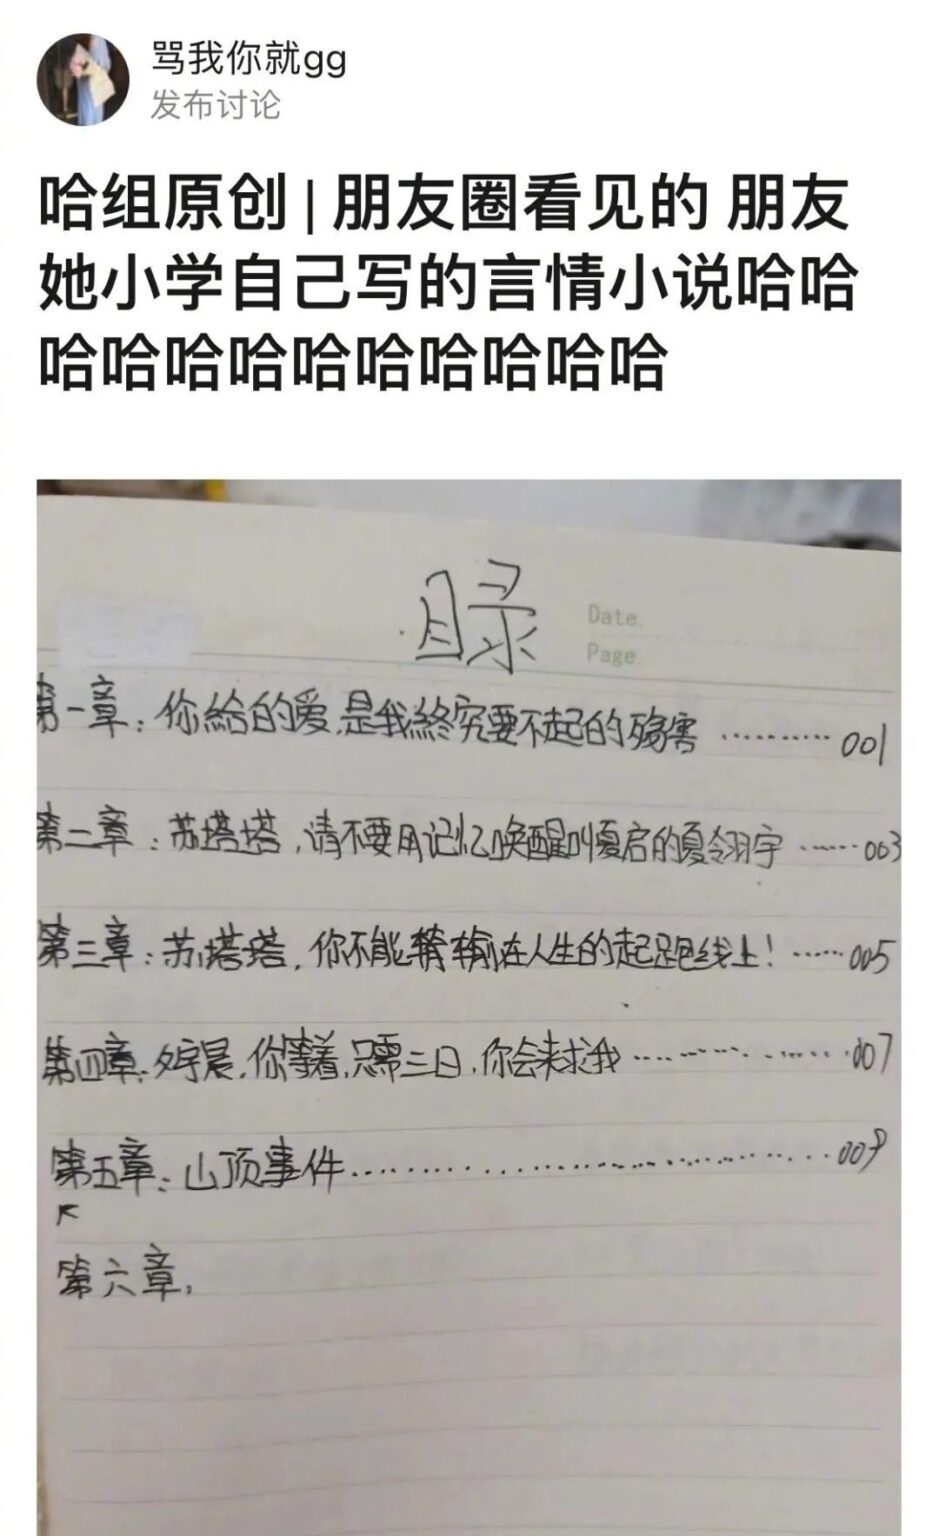 骂我你就gg
发布讨论
哈组原创|朋友圈看见的 朋友
她小学自己写的言情小说哈哈
哈哈哈哈哈哈哈哈哈哈
目录
Date.
Page
第一章：你給的爱,是我終究要不起的殇害 ………… 001
第二章：苏塔塔,请不要用记忆唤醒叫夏启的夏翎宇 …… 003
第三章：苏塔塔,你不能输在人生的起跑线上! …… 005
第四章:宇晨,你等着,只需三日,你会来求我 ………… 007
第五章:山顶事件 ………… 009
第六章: